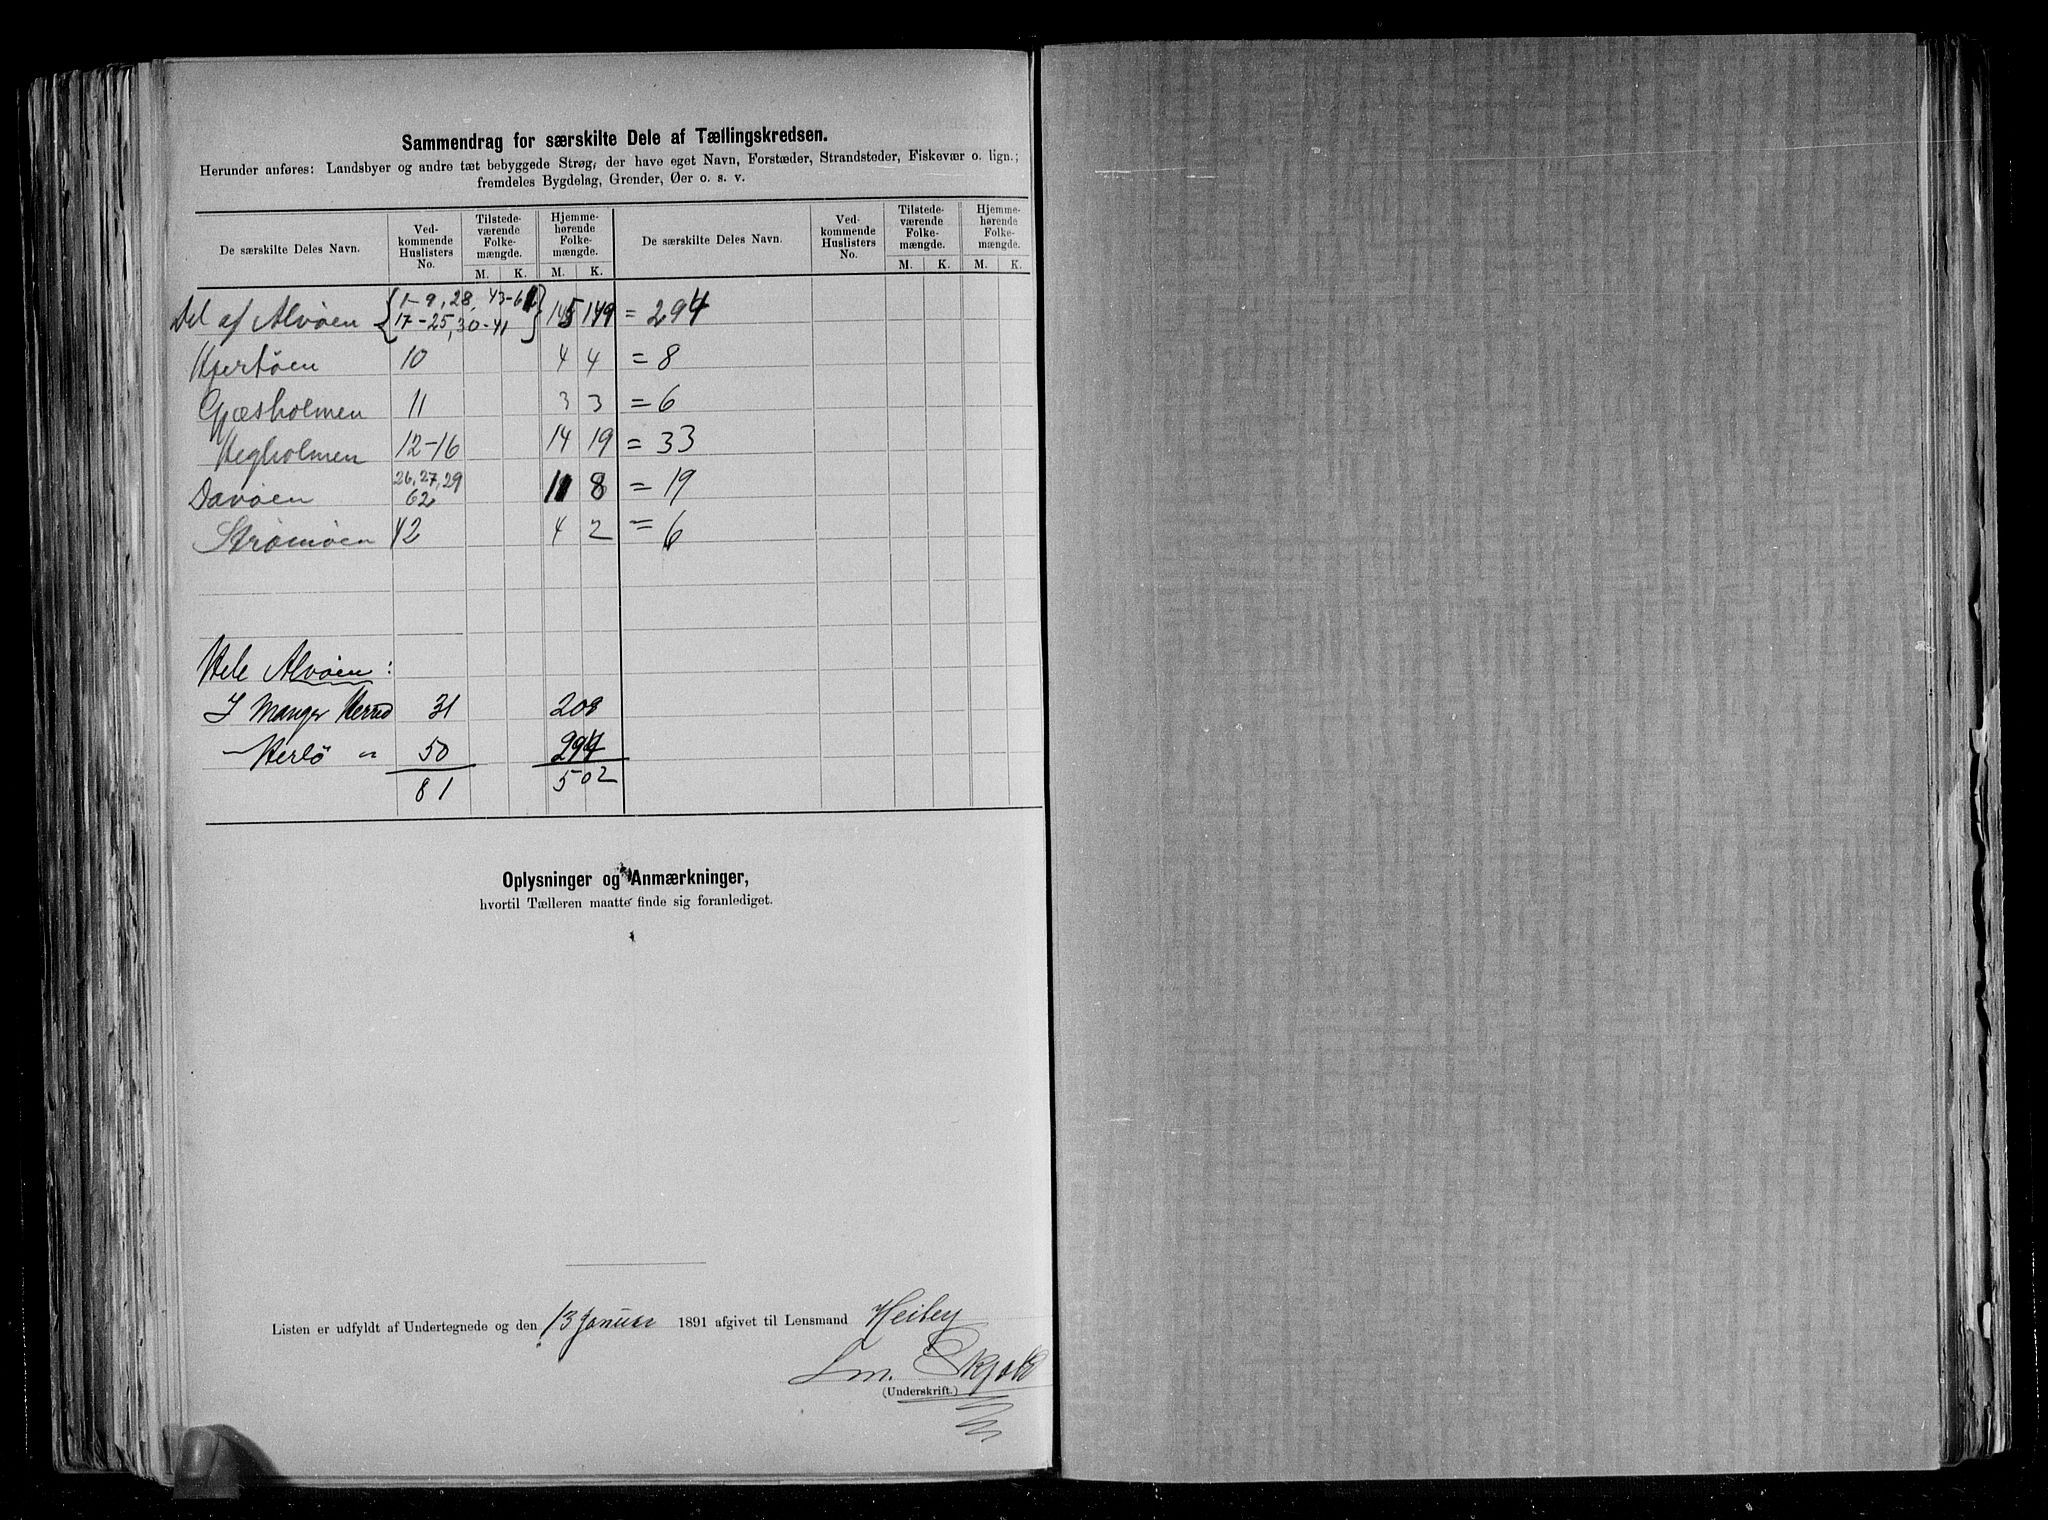 Sammendrag for særskilte Dele af Tællingskredsen.
Herunder anføres: Landsbyer og andre tæt bebyggede Strøg, der have eget Navn, Forstæder, Strandsteder, Fiskevær o. lign.;
fremdeles Bygdelag, Grender, Øer o. s. v.
De særskilte Deles Navn. Ved-kommende Huslisters No. Tilstede-værende Folke-mængde. Hjemme-hørende Folke-mængde. De særskilte Deles Navn. Ved-kommende Huslisters No. Tilstede-værende Folke-mængde. Hjemme-hørende Folke-mængde.
M. K. M. K. M. K. M. K.
Del af Alvøen { 1-9, 28, 43-61 } 145 149 = 294
17-25, 30-41
Hjertøen 10 4 4 = 8
Gjæsholmen 11 3 3 = 6
Hegholmen 12-16 14 19 = 33
26, 27, 29
Davøen 62 11 8 = 19
Strømøen 42 4 2 = 6
Hele Alvøen :
I Manger Herred 31 208
— Herlø " 50 294
81 502
Oplysninger og Anmærkninger,
hvortil Tælleren maatte finde sig foranlediget.
Listen er udfyldt af Undertegnede og den 13 Januar 1891 afgivet til Lensmand
Skjold
(Underskrift.)